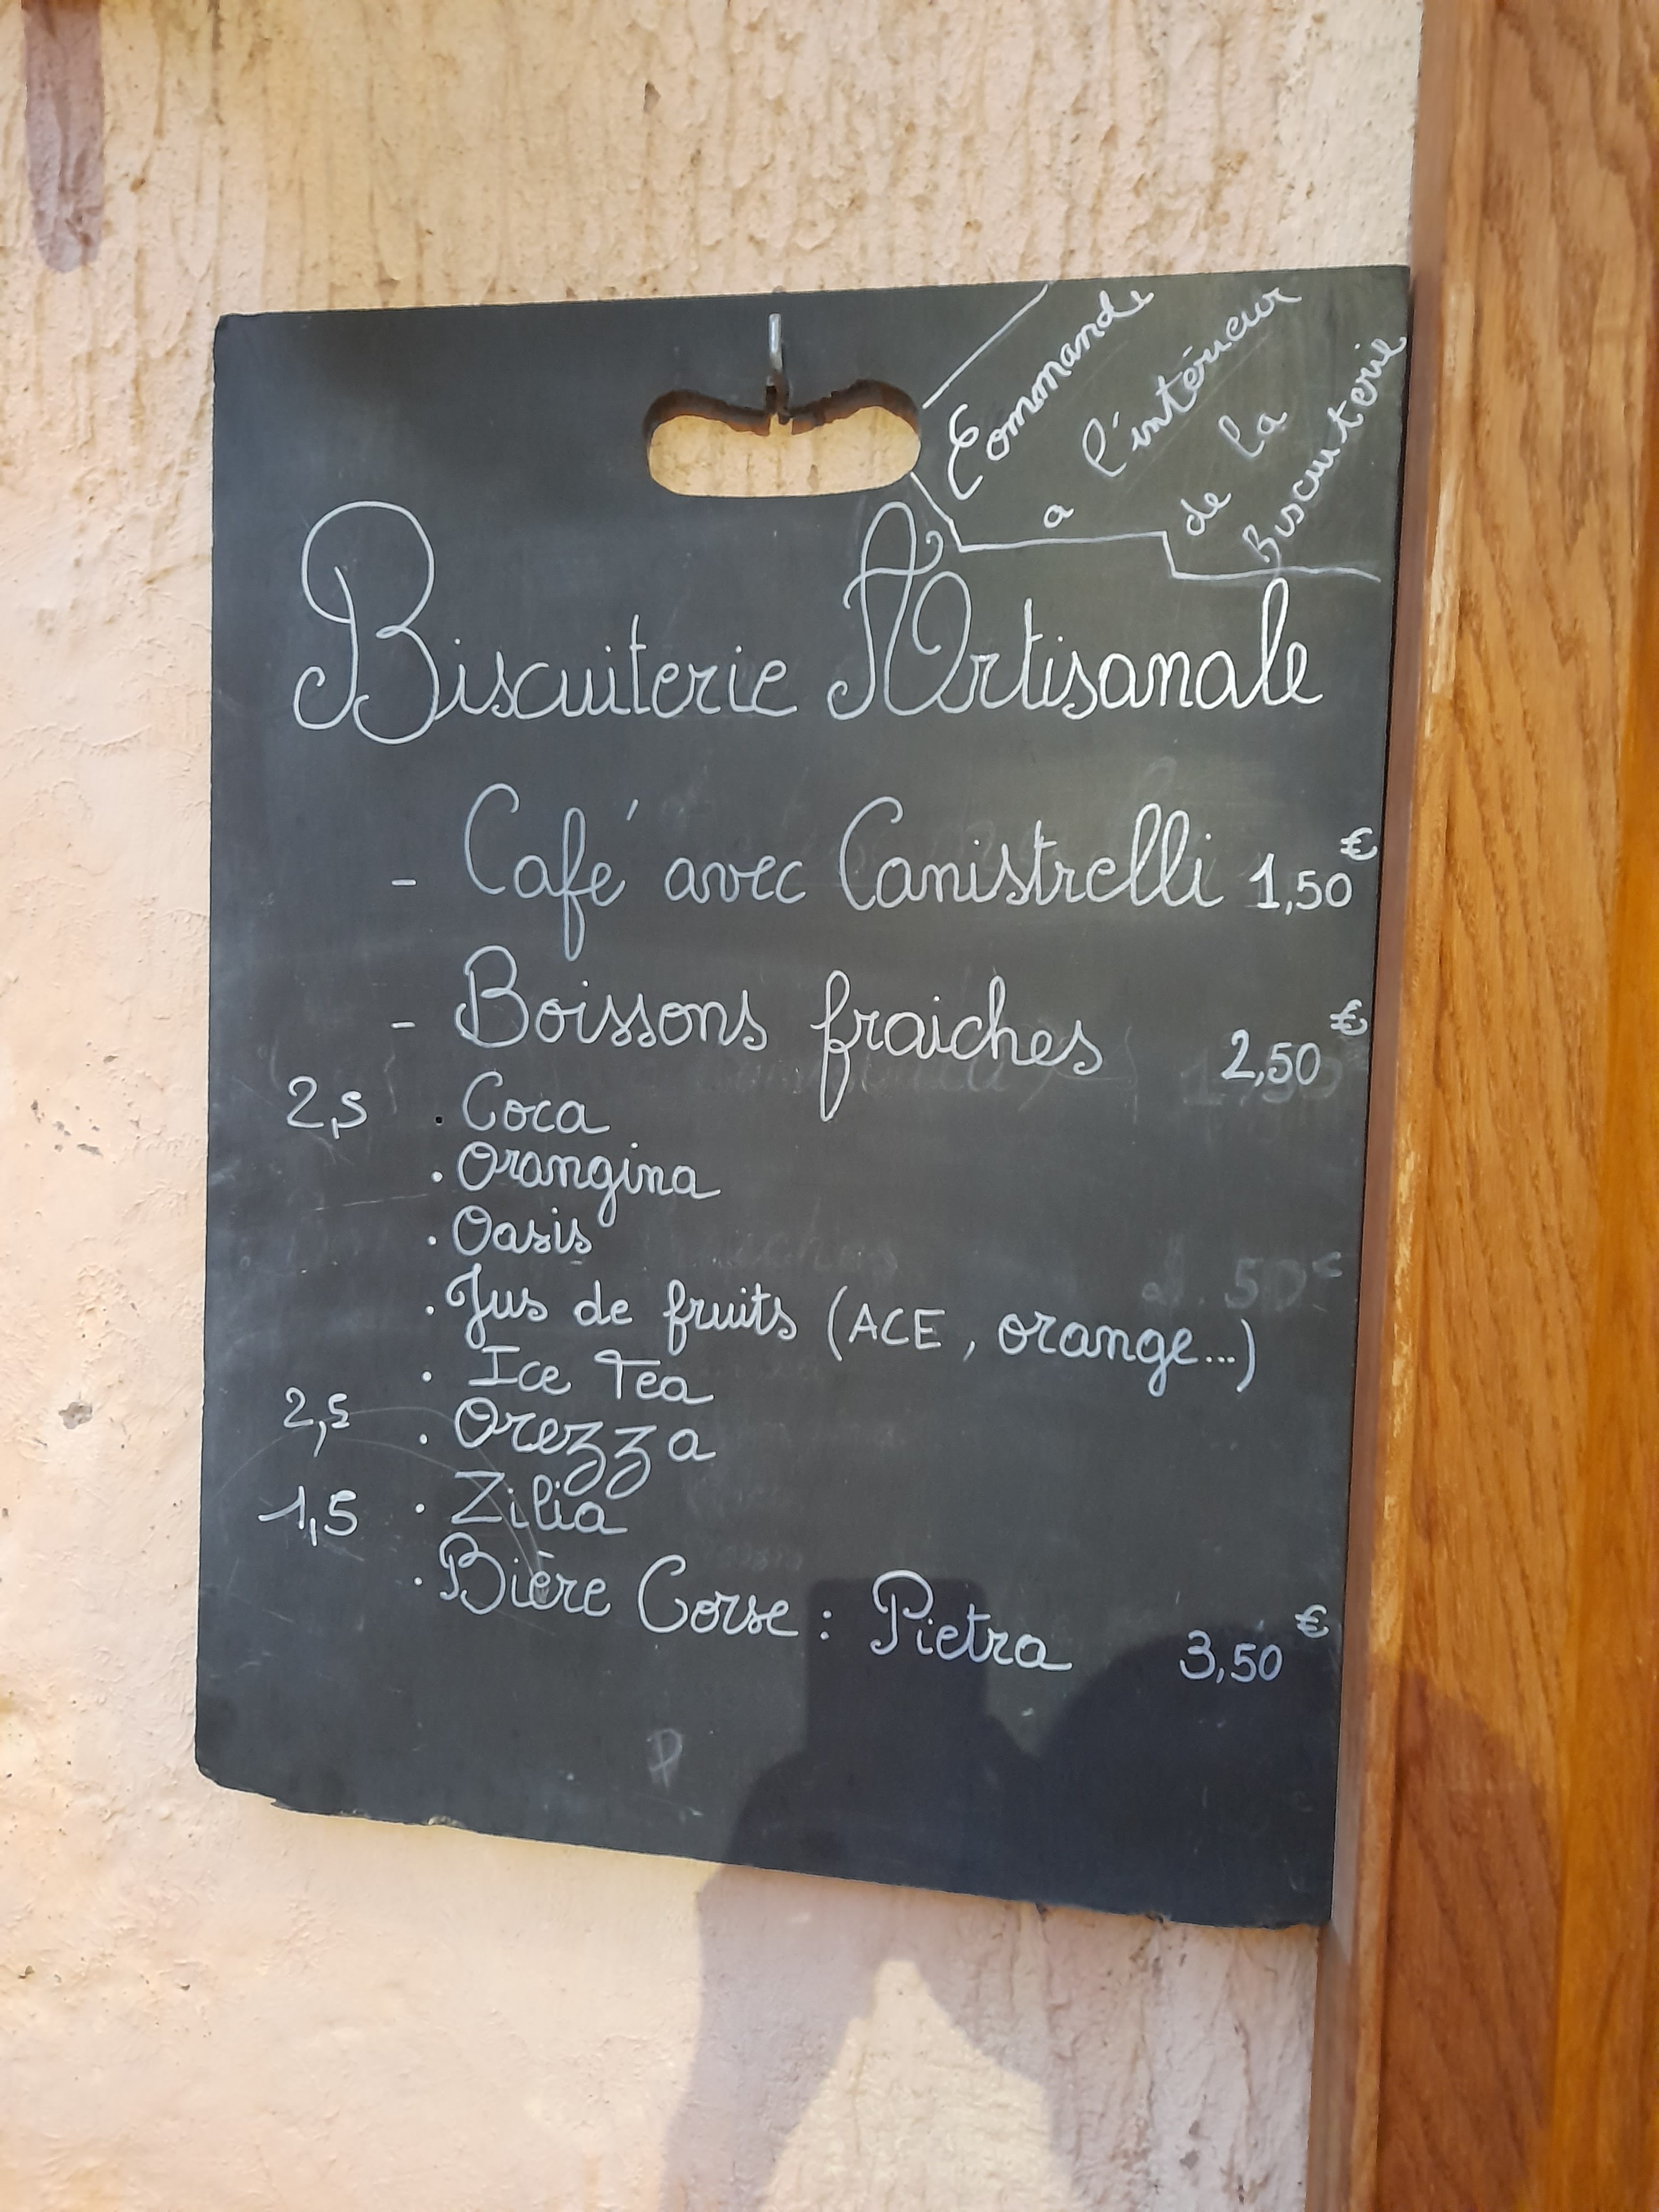 Commande
a l'intérieur
de la
Biscuiterie
Biscuiterie Artisanale
- Café avec Canistrelli 1,50€
- Boissons fraiches 2,50€
2,5 . Coca
. Orangina
. Oasis
. Jus de fruits (ACE, orange...)
. Ice Tea
2,5 . Orezza
1,5 . Zilia
. Bière Corse : Pietra 3,50€